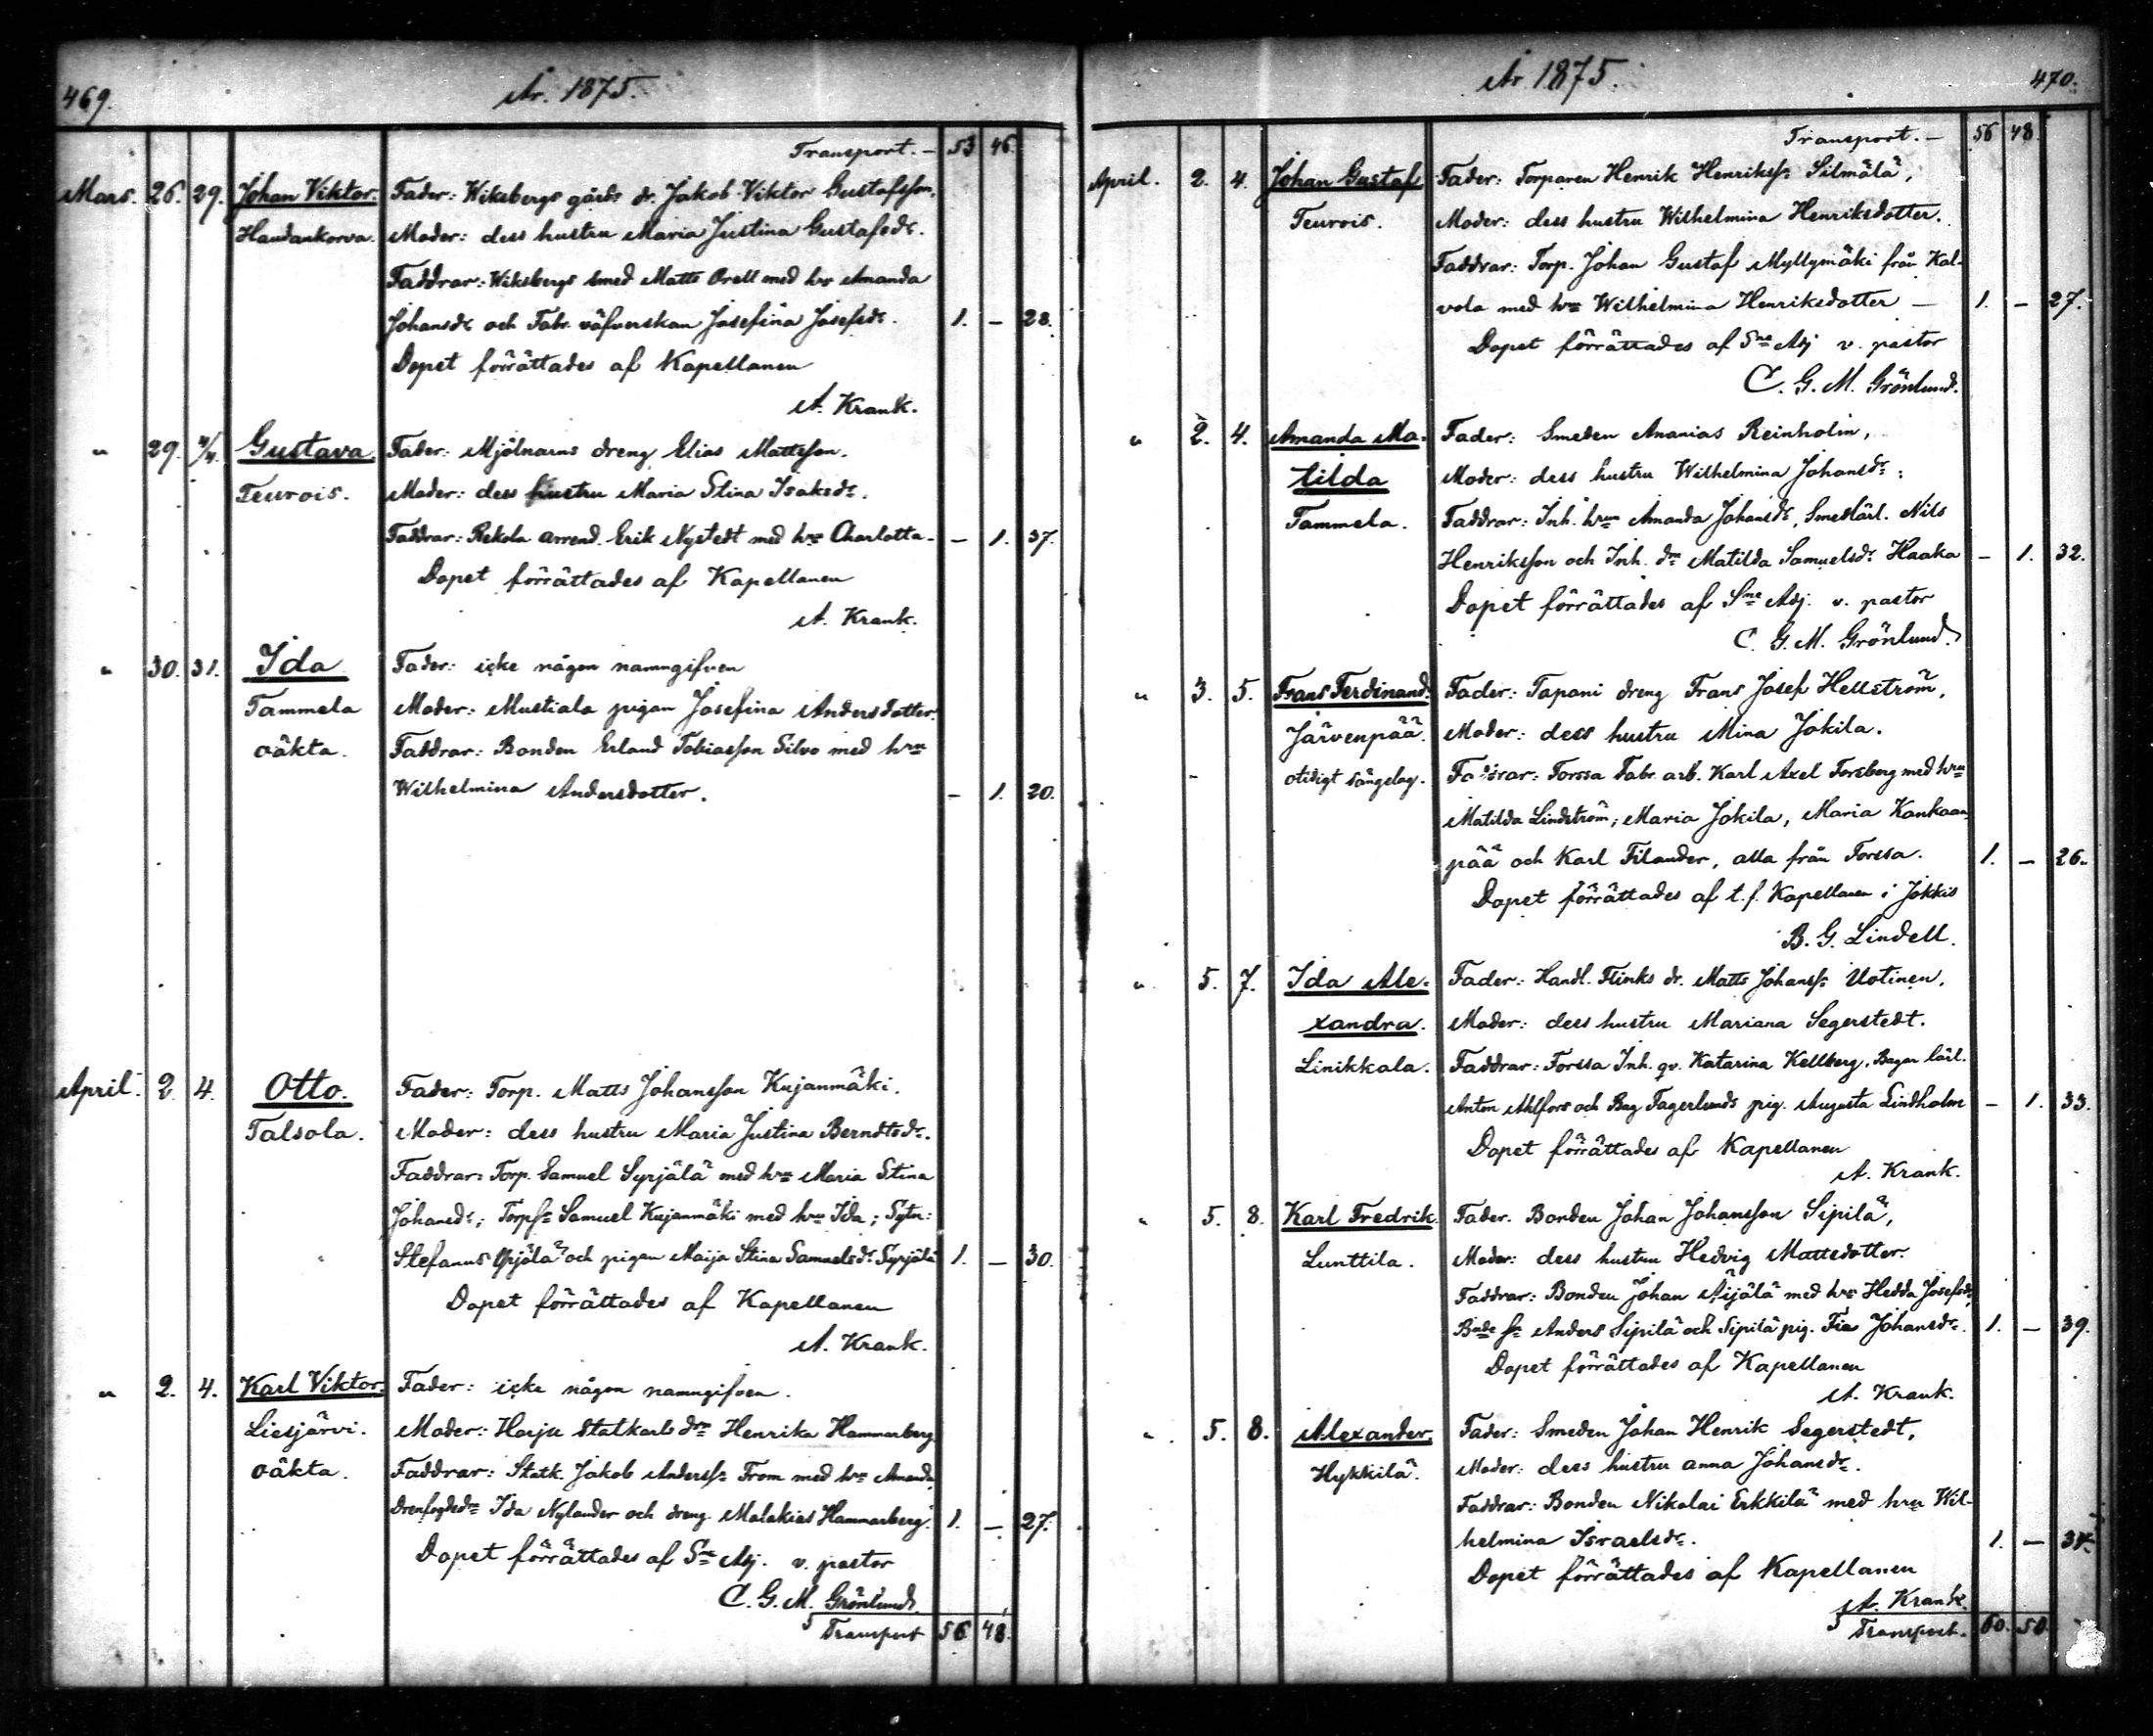 469.
År. 1875.
Transport. — 53 46.
Mars. 26. 29. Johan Viktor. Fader: Wiksbergs gårds dr. Jakob Viktor Gustafsson.
Haudankorva. Moder: dess hustru Maria Justina Gustafsdr.
Faddrar: Wiksbergs smed Matts Orell med hr Amanda
Johansdr och Fabr. väfverskan Josefina Josefsdr. 1. — 28.
Dopet förrättades af Kapellanen
A. Krank.
" 29. 4/4. Gustava. Fader: Mjölnarns dreng Elias Mattsson.
Teurois. Moder: dess hustru Maria Stina Isaksdr.
Faddrar: Rekola arrend. Erik Nystedt med hru Charlotta — — 1. 37.
Dopet förrättades af Kapellanen
A. Krank.
" 30. 31. Ida Fader: icke någon namngifven
Tammela Moder: Mustiala pigan Josefina Andersdotter.
oäkta. Faddrar: Bonden Erland Tobiasson Silvo med hru
Wilhelmina Andersdotter. — 1. 20.
April. 2. 4. Otto. Fader: Torp. Matts Johansson Kujanmäki.
Talsola. Moder: dess hustru Maria Justina Berndtsdr.
Faddrar: Torp. Samuel Syrjälä med hru Maria Stina
Johansdr; Torpss Samuel Kujanmäki med hru Ida; Sytn:
Stefanus Yrjölä och pigan Maija Stina Samuelsdr Syrjälä 1. — 30.
Dopet förrättades af Kapellanen
A. Krank.
" 2. 4. Karl Viktor. Fader: icke någon namngifven.
Liesjärvi. Moder: Harju statkarls drn Henrika Hammarberg
oäkta. Faddrar: Statk. Jakob Anderss From med hru Amanda,
Ida Nylander och dreng Malakias Hammarberg. 1. — 27.
Dopet förrättades af Sne Adj. v. pastor
C. G. M. Grönlund.
Transport 56 48.
År 1875.
470.
Transport. — 56 48
April. 2. 4. Johan Gustaf Fader: Torparen Henrik Henrikss: Silmälä,
Teurois. Moder: dess hustru Wilhelmina Henriksdotter.
Faddrar: Torp. Johan Gustaf Myllymäki från Kal-
vola med hru Wilhelmina Henriksdotter — 1. — 27.
Dopet förrättades af Sne Adj v. pastor
C. G. M. Grönlund.
" 2. 4. Amanda Ma- Fader: Smeden Ananias Reinholm,
tilda Moder: dess hustru Wilhelmina Johansdr:
Tammela. Faddrar: Inh. hrun Amanda Johansdr, Smedlärl. Nils
Henriksson och Inh. drn Matilda Samuelsdr Haaka — 1. 32.
Dopet förrättades af Sne Adj. v. pastor
C. G. M. Grönlund.
" 3. 5. Frans Ferdinand. Fader: Tapani dreng Frans Josef Hellström,
Järvenpää. Moder: dess hustru Mina Jokila.
otidigt sängelag. Faddrar: Forssa Fabr. arb. Karl Axel Forsberg med hru
Matilda Lindström, Maria Jokila, Maria Kankaan-
pää och Karl Filander, alla från Forssa. 1. — 26.
Dopet förrättades af t. f. Kapellanen i Jokkis
B. G. Lindell.
" 5. 7. Ida Ale- Fader: Handl. Flinks dr. Matts Johanss: Uotinen.
xandra. Moder: dess hustru Mariana Segerstedt.
Linikkala. Faddrar: Forssa Inh. qv. Katarina Kellberg, Bagar lärl.
Anton Ahlfors och Bag Fagerlunds pig. Augusta Lindholm — 1. 33.
Dopet förrättades af Kapellanen
A. Krank.
" 5. 8. Karl Fredrik. Fader. Bonden Johan Johansson Sipilä,
Lunttila. Moder: dess hustru Hedvig Mattsdotter.
Faddrar: Bonden Johan Äijälä med hru Hedda Josefsdr,
Bnde sn Anders Sipilä och Sipilä pig. Fia Johansdr. 1. — 39.
Dopet förrättades af Kapellanen
A. Krank.
" 5. 8. Alexander. Fader: Smeden Johan Henrik Segerstedt,
Hykkilä. Moder: dess hustru Anna Johansdr.
Faddrar: Bonden Nikolai Erkkilä med hru Wil-
helmina Israelsdr. 1. — 34.
Dopet förrättades af Kapellanen
A. Krank.
Transport. 60. 50.